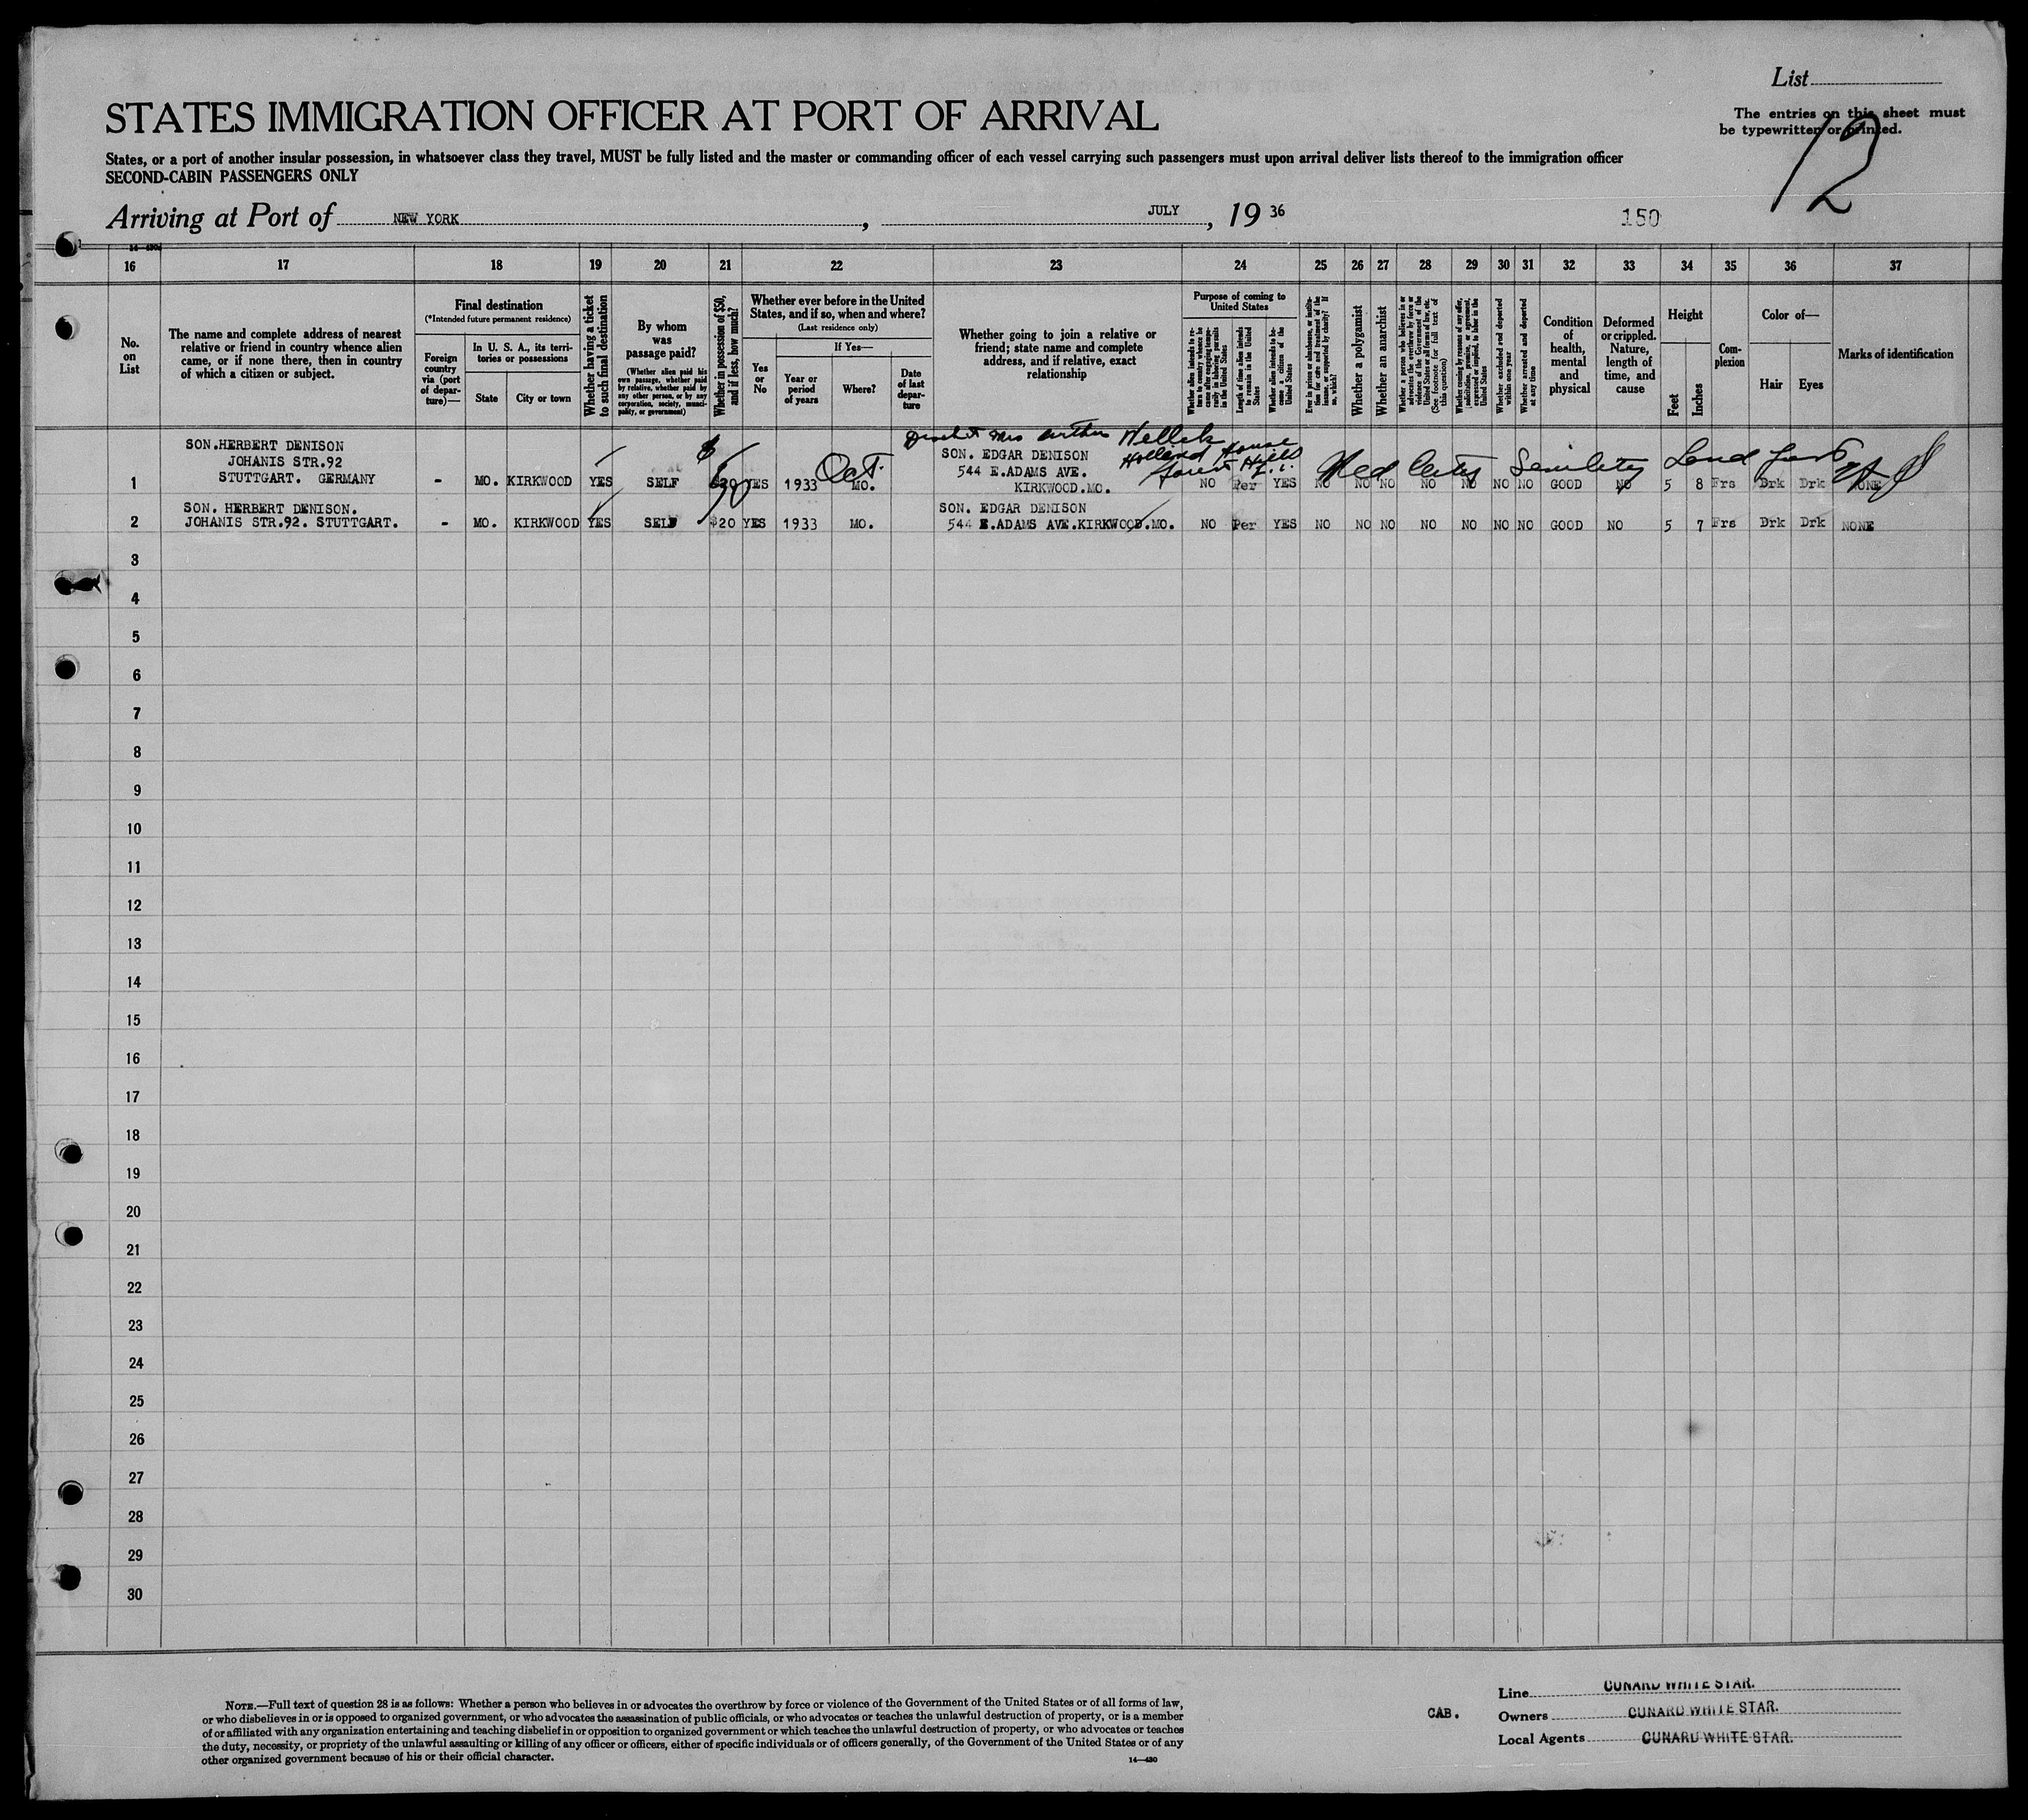 List
STATES IMMIGRATION OFFICER AT PORT OF ARRIVAL
The entries on this sheet must
be typewritten or printed.
12
States, or a port of another insular possession, in whatsoever class they travel, MUST be fully listed and the master or commanding officer of each vessel carrying such passengers must upon arrival deliver lists thereof to the immigration officer
SECOND-CABIN PASSENGERS ONLY
Arriving at Port of NEW YORK, JULY, 19 36
150
16 17 18 19 20 21 22 23 24 25 26 27 28 29 30 31 32 33 34 35 36 37
No. on List
The name and complete address of nearest
relative or friend in country whence alien
came, or if none there, then in country
of which a citizen or subject.
Final destination
(*Intended future permanent residence)
Foreign country via (port of departure)—
In U. S. A., its territories or possessions
State
City or town
Whether having a ticket to such final destination
By whom was passage paid?
(Whether alien paid his own passage, whether paid by relative, whether paid by any other person, or by any corporation, society, municipality, or government)
Whether in possession of $50, and if less, how much?
Whether ever before in the United
States, and if so, when and where?
(Last residence only)
If Yes—
Yes or No
Year or period of years
Where?
Date of last departure
Whether going to join a relative or
friend; state name and complete
address, and if relative, exact
relationship
Purpose of coming to United States
Whether alien intends to return to country whence he came after engaging temporarily in laboring pursuits in the United States
Length of time alien intends to remain in the United States
Whether alien intends to become a citizen of the United States
Ever in prison or almshouse, or institution for care and treatment of the insane, or supported by charity? If so, which?
Whether a polygamist
Whether an anarchist
Whether a person who believes in or advocates the overthrow by force or violence of the Government of the United States or all forms of law, etc. (See footnote for full text of this question)
Whether coming by reasons of any offer, solicitation, promise, or agreement, expressed or implied, to labor in the United States
Whether excluded and deported within one year
Whether arrested and deported at any time
Condition of health, mental and physical
Deformed or crippled. Nature, length of time, and cause
Height
Feet
Inches
Complexion
Color of—
Hair
Eyes
Marks of identification
Mrs Hellek
Holland House
Forest Hills
L.I.
SON.HERBERT DENISON
JOHANIS STR.92
STUTTGART. GERMANY
SON. EDGAR DENISON
544 E.ADAMS AVE.
KIRKWOOD.MO.
$ 50
Oct.
1 - MO. KIRKWOOD YES SELF $20 YES 1933 MO. NO Per YES NO NO NO NO NO NO NO GOOD NO 5 8 Frs Drk Drk NONE
SON. HERBERT DENISON.
SON. EDGAR DENISON
2 JOHANIS STR.92. STUTTGART. - MO. KIRKWOOD YES SELF $20 YES 1933 MO. 544 E.ADAMS AVE.KIRKWOOD.MO. NO Per YES NO NO NO NO NO NO NO GOOD NO 5 7 Frs Drk Drk NONE
3
4
5
6
7
8
9
10
11
12
13
14
15
16
17
18
19
20
21
22
23
24
25
26
27
28
29
30
NOTE.—Full text of question 28 is as follows: Whether a person who believes in or advocates the overthrow by force or violence of the Government of the United States or of all forms of law,
or who disbelieves in or is opposed to organized government, or who advocates the assassination of public officials, or who advocates or teaches the unlawful destruction of property, or is a member
of or affiliated with any organization entertaining and teaching disbelief in or opposition to organized government or which teaches the unlawful destruction of property, or who advocates or teaches
the duty, necessity, or propriety of the unlawful assaulting or killing of any officer or officers, either of specific individuals or of officers generally, of the Government of the United States or of any
other organized government because of his or their official character.
14—430
CAB.
Line CUNARD WHITE STAR.
Owners CUNARD WHITE STAR.
Local Agents CUNARD WHITE STAR.